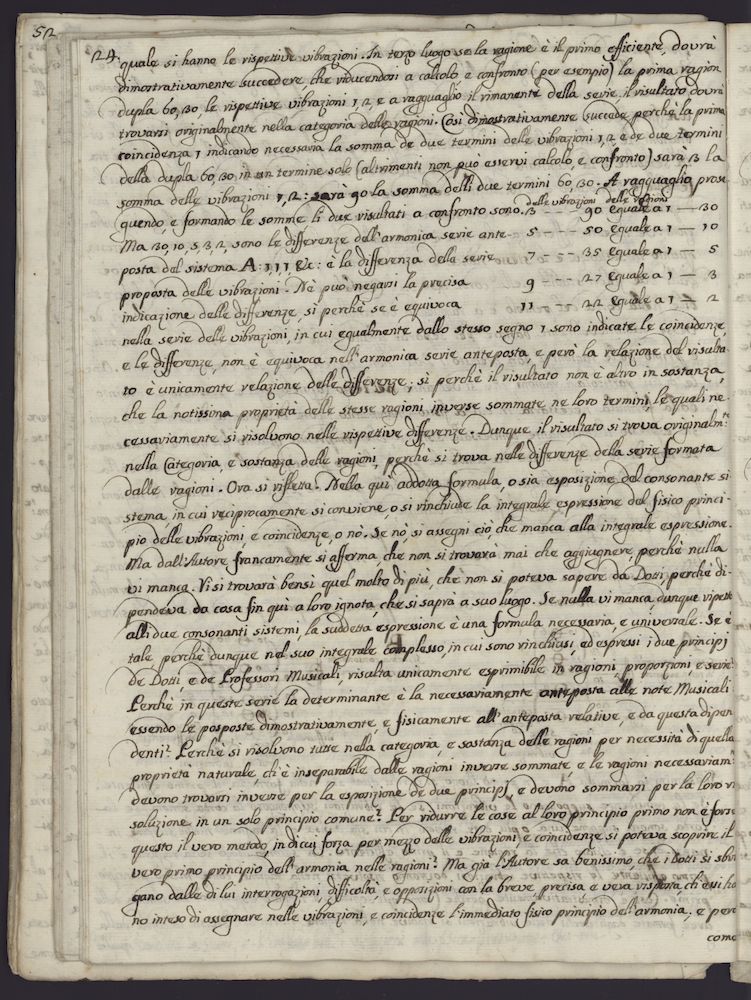 52
24. quale si hanno le rispettive vibrazioni. In terzo luogo se la ragione è il primo efficiente, dovrà
dimostrativamente succedere, che riducendosi a calcolo, e confronto (per esempio) la prima ragion
dupla 60, 30, le rispettive vibrazioni 1, 2, e a ragguaglio il rimanente della serie, il risultato dovrà
trovarsi originalmente nella categoria delle ragioni. Così dimostrativamente succede, perchè la prima
coincidenza 1 indicando necessaria la somma de due termini delle vibrazioni 1, 2, e de due termini
della dupla 60, 30 in un termine solo (altrimenti non può esservi calcolo, e confronto) sarà 3 la
somma delle vibrazioni 1, 2: sarà 90 la somma delli due termini 60, 30. A ragguaglio prose
delle vibrazioni delle ragioni
quendo, e formando le somme li due risultati a confronto sono. 3 --- 90 eguale a 1 — 30
Ma 30, 10, 5, 3, 2, sono le differenze dell'armonica serie ante- 5 --- 50 eguale a 1 — 10
posta dal sistema A: 1, 1, 1 &c: è la differenza della serie 7 --- 35 eguale a 1 — 5
proposta delle vibrazioni. Nè può negarsi la precisa 9 --- 27 eguale a 1 — 3
indicazione delle differenze, sì perchè se è equivoca 11 --- 22 eguale a 1 — 2
nella serie delle vibrazioni, in cui egualmente dallo stesso segno 1 sono indicate le coincidenze,
e le differenze, non è equivoca nell'armonica serie anteposta, e però la relazione del risulta
to è unicamente relazione delle differenze; sì perchè il risultato non è altro in sostanza,
che la notissima proprietà delle stesse ragioni inverse sommate ne loro termini, le quali ne
cessariamente si risolvono nelle rispettive differenze. Dunque il risultato si trova originalm.te
nella Categoria, e sostanza delle ragioni, perchè si trova nelle differenze della serie formata
dalle ragioni. Ora si rifletta. Nella qui addotta formula, o sia esposizione del consonante si
stema, in cui reciprocamente si conviene, o si rinchiude la integrale espressione del fisico princi-
pio delle vibrazioni, e coincidenze, o nò. Se nò, si assegni ciò che manca alla integrale espressione.
Ma dall'Autore francamente si afferma, che non si trovarà mai che aggiugnere, perchè nulla
vi manca. Vi si trovarà bensì quel molto di più, che non si poteva sapere da Dotti, perchè di-
pendeva da cosa fin quì a loro ignota, che si saprà a suo luogo. Se nulla vi manca, dunque rispetto
alli due consonanti sistemi, la suddetta espressione è una formula necessaria, e universale. Se è
tale, perchè dunque nel suo integrale complesso, in cui sono rinchiusi, ed espressi i due principj
de Dotti, e de Professori Musicali, risulta unicamente esprimibile in ragioni, proporzioni, e serie?
Perchè in queste serie la determinante è la necessariamente anteposta alle note Musicali
essendo le posposte dimostrativamente, e fisicamente all'anteposta relative, e da questa dipen
denti? Perchè si risolvono tutte nella categoria, e sostanza delle ragioni per necessità di quella
proprietà naturale, ch'è inseparabile dalle ragioni inverse sommate e le ragioni necessariam.te
devono trovarsi inverse per la esposizione de due principj, e devono sommarsi per la loro ri
soluzione in un solo principio comune? Per ridurre le cose al loro principio primo non è forse
questo il vero metodo, in di cui forza per mezzo delle vibrazioni, e coincidenze si poteva scoprire il
vero primo principio dell'armonia nelle ragioni? Ma già l'Autore sa benissimo che i Dotti si sbri
gano dalle di lui interrogazioni, difficoltà, e opposizioni con la breve, precisa e vera risposta, ch'essi ha
no inteso di assegnare nelle vibrazioni, e coincidenze l'immediato fisico principio dell'armonia. e però
come